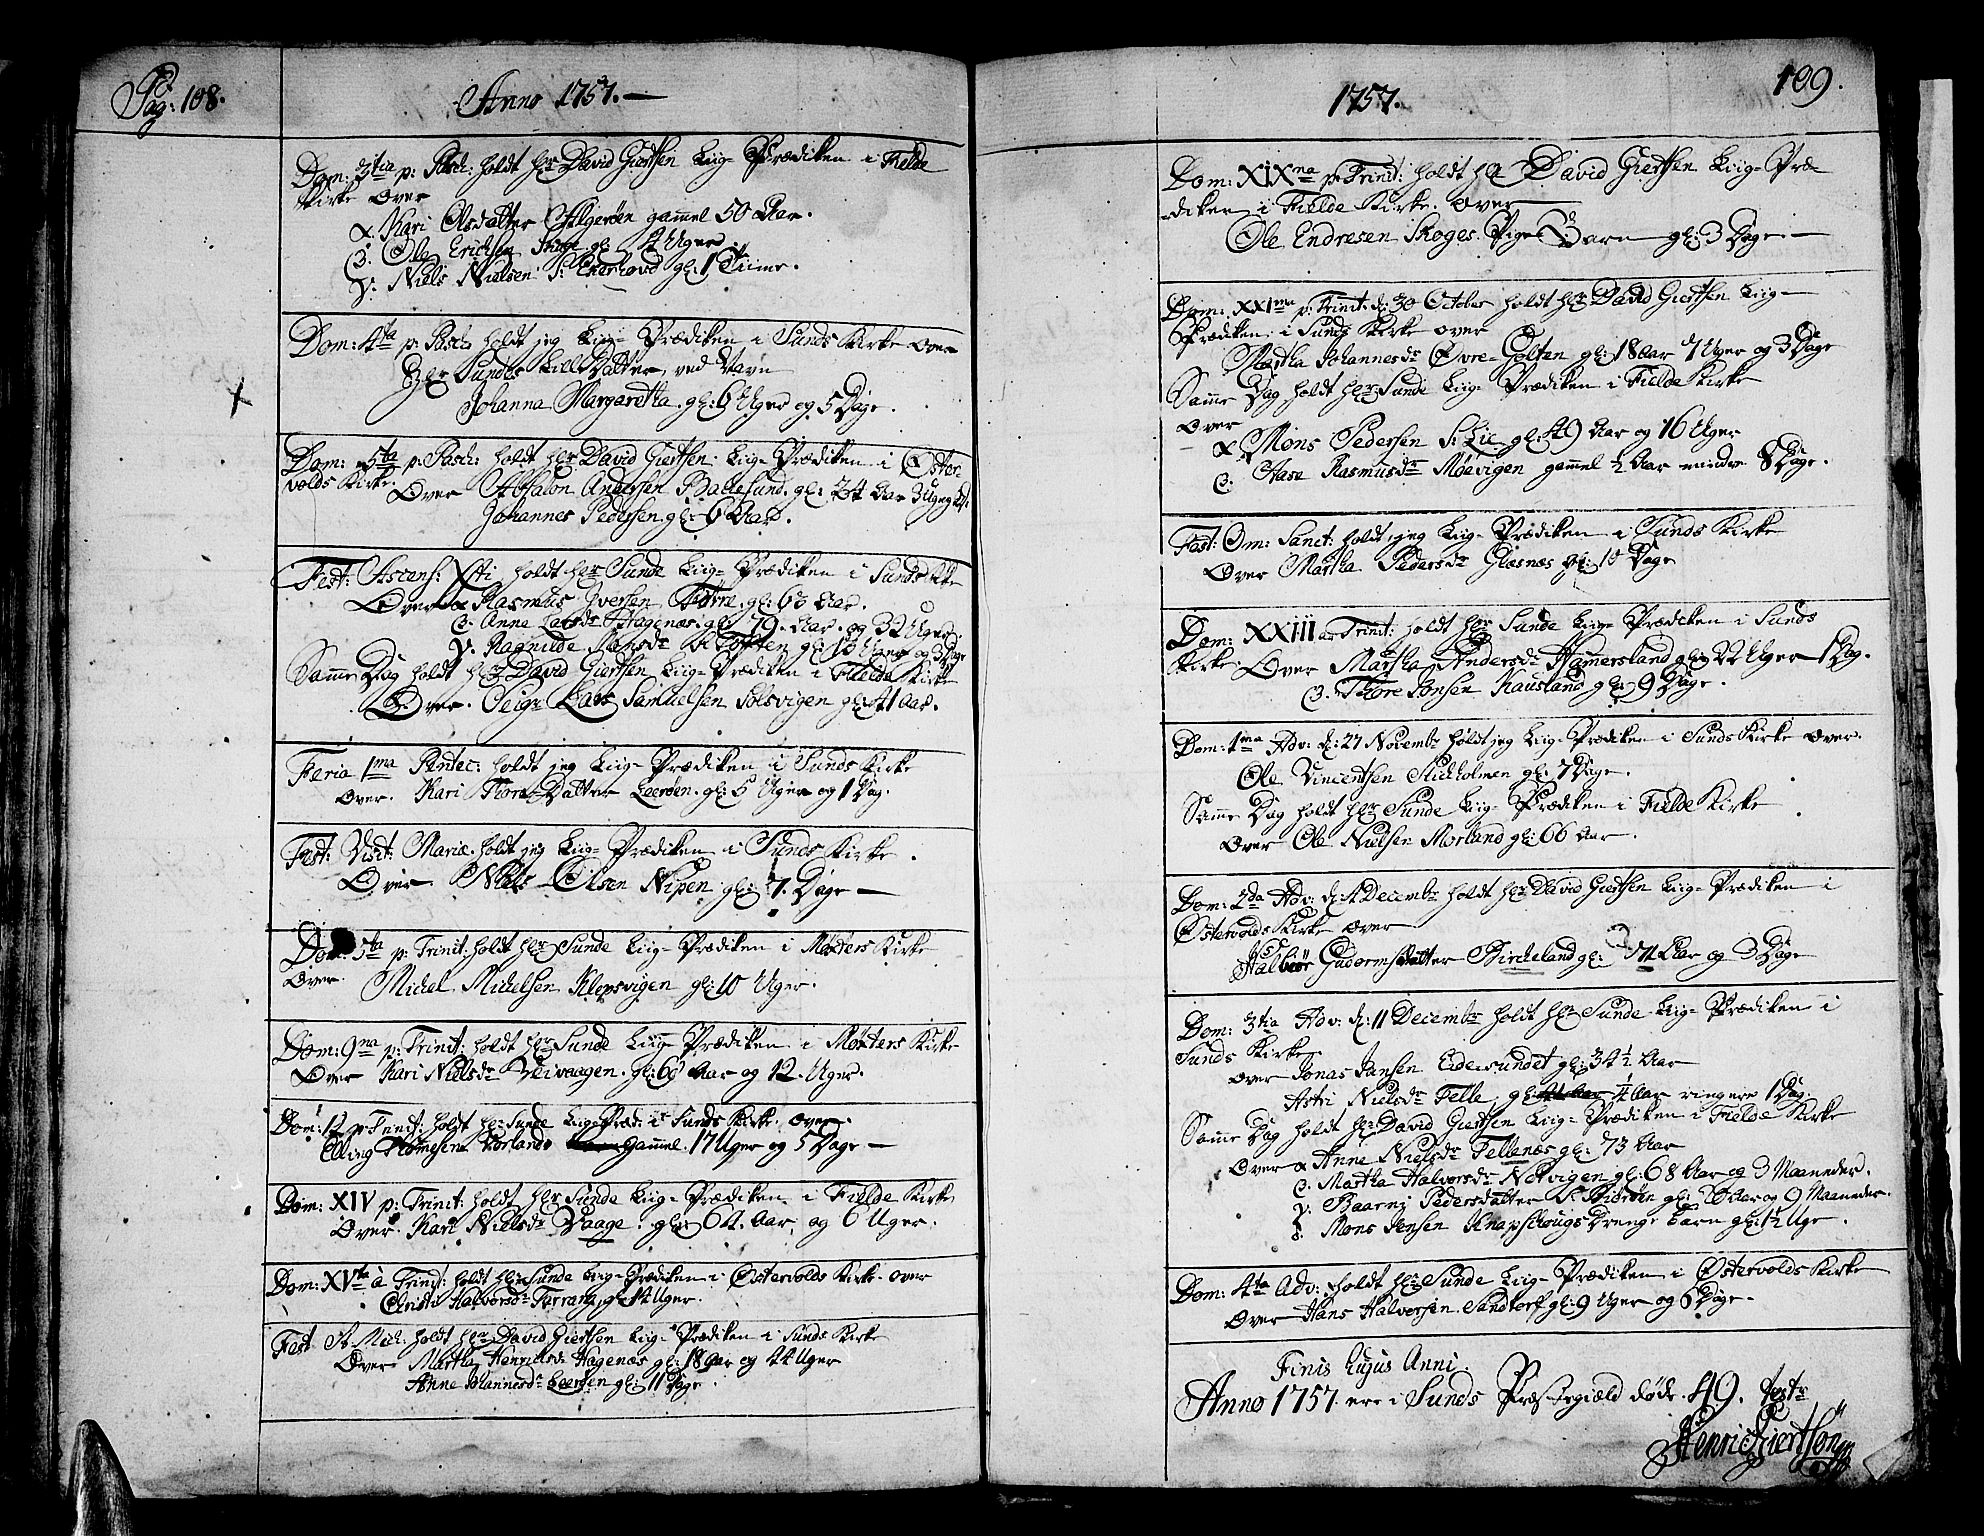 Pag: 108.
Anno 1757.
Dom: 3tia p: Pasch: holdt hr David Giertsen Liig-Prædiken i Fielde
Kirke over
α. Kari Olsdatter Algerøen gammel 50 Aar.
β. Ole Erichsen gl: 4 Uger
γ. Niels Nielsen gl: 1 Time.
Dom: 4ta p: Pasch holdt jeg Liig-Prædiken i Sunds Kirke over
Hr Sundes Lille Datter, ved Navn
Johanna Margaretha. gl: 6 Uger og 5 Dage.
Dom: 5ta p: Pasch: holdt hr David Giertsen Liig-Prædiken i Øster-
volds Kirke.
Over Absalon Andersen Ballesund. gl: 34 Aar 3 Ug
Johannes Pedersen gl: 6 Aar.
Fest: Ascens: Xsti holdt hr Sunde Liig-Prædiken i Sunds Kke
Over α Rasmus Iversen Tørre. gl: 63 Aar.
β. Anne Larsdr Hagenæs. gl: 79 Aar. og 32 Uger
γ. Ragnilde Monsdr gl: 13 Uger og 3 Dage
Samme Dag holdt hr David Giertsen Liig-Prædiken i Fielde Kirke
Over. Seigr Lars Samuelsen Solsvigen gl: 41 Aar.
Feria 1ma Pentec: holdt jeg Liig-Prædiken i Sunds Kirke
Over. Kari Thore-Datter Leerøen. gl: 5 Uger og 1 Dag.
Fest: Visit: Mariæ. holdt jeg Liig-Prædiken i Sunds Kirke.
Over. Niels Olsen Nipen gl: 7. Dage
Dom: 5ta p: Trinit: holdt hr Sunde Liig-Prædiken i Møsters Kirke
Over.
Michel Michelsen Klepsvigen gl: 10 Uger.
Dom: 9na p: Trinit: holdt hr Sunde Liig-Prædiken i Møsters Kirke
Over Kari Nielsdr Veivaagen. gl: 60 Aar og 12. Uger.
Dom: 12 p Trinit: holdt hr Sunde Liig-Præd: i Sunds Kirke. over.
Elling gammel. 17 Uger og 5 Dage
Dom: XIV p: Trinit: holdt hr Sunde Liig-Prædiken i Fielde Kirke
Over Kari Nielsdr Vaage. gl: 64. Aar og 6 Uger.
Dom: XVta à Trinit: holdt hr Sunde Liig-Prædiken i Østervolds Kirke over
Christi Halvorsdr gl 14 Uger.
Fest St. Mich: holdt hr David Giertsen Liig-Prædiken i Sunds Kirke
Over Martha Henrichsdr Hagenæs gl: 18 Aar og 44 Uger
Anne Johannesdr Leerøen gl: 11 Dage.
1757.
109.
Dom: XIXna p: Trinit: holdt hr David Giertsen Liig-Præ-
diken i Fielde Kirke. over
Ole Endresen Skoges. Pige Barn gl: 3 Dage.
Dom: XXIma p: Trinit. d: 30 October holdt hr David Giertsen Liig-
Prædiken i Sunds Kirke over
Martha Johannesdr Øvre-Golten gl: 18 Aar 7 Uger og 3 Dage
Samme Dag holdt hr Sunde Liig-Prædiken i Fielde Kirke
over
α Mons Pedersen S. Lie gl: 49 Aar og 16 Uger
β. Aase Rasmusdr Møevigen gammel ½ Aar mindre 8 Dage.
Fest: Om: Sanct: holdt jeg Liig-Prædiken i Sunds Kirke
Over Martha Pedersdr Glæsnæs gl: 10 Dage
Dom: XXIII a Trinit: holdt hr Sunde Liig-Prædiken i Sunds
Kirke. Over Martha Andersdr Hammersland gl: 22 Uger 1 Dag.
β. Thore Jonsen Kausland gl: 9 Dage.
Dom: 1ma Adv: d: 27 Novembr holdt jeg Liig-Prædiken i Sunds Kirke over.
Ole Vincentsen Stichholmen gl: 7 Dage.
Samme Dag holdt hr Sunde Liig-Prædiken i Fielde Kirke
Over Ole Nielsen Morland gl: 66 Aar.
Dom: 2da Adv: d: 4 Decembr holdt hr David Giertsen Liig-Prædiken i
Østervolds Kirke over
Gudormsdatter Birkeland gl: 71 Aar og 3 Dage
Dom: 3tia Adv: d: 11 Decembr holdt hr Sunde Liig-Prædiken i
Sunds Kirke
over Jonas Jansen Eidesundet gl: 34½ Aar
Astri Nielsdr Telle gl: ¼ Aar ringere 1 Dag.
Samme Dag holdt hr David Giertsen Liig-Prædiken i Fielde Kirke
Over α Anne Nielsdr Tellenæs gl: 73 Aar
β. Martha Halvorsdr Notvigen gl: 68 Aar og 3 Maaneder.
γ. Baarni Pedersdatter gl: Aar og 9 Maaneder.
δ. Mons Jensen Knapschougs Drenge Barn gl: 1½ Uge.
Dom: 4ta Adv: holdt hr Sunde Liig-Prædiken i Østervolds Kirke
Over Hans Halvorsen. Sandtorf gl: 9 Uger og 6 Dage.
Finis hujus Anni.
Anno 1757. ere i Sunds Præstegiæld døde. 49. testr
Henric Giertsøn